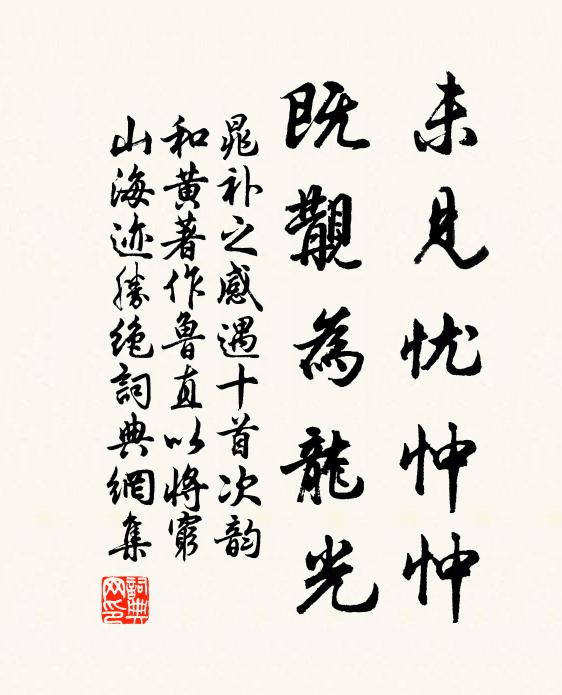 未見忧忡忡
既觏為龍光
晁补之感遇十首次韵
和黄著作鲁直以将窮
山海迹勝绝詞典網集
詞典
网印